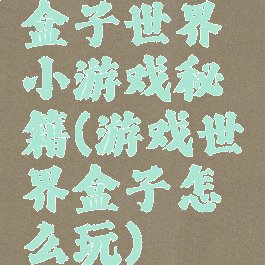 盒子世界
小游戏秘
籍(游戏世
界盒子怎
么玩)